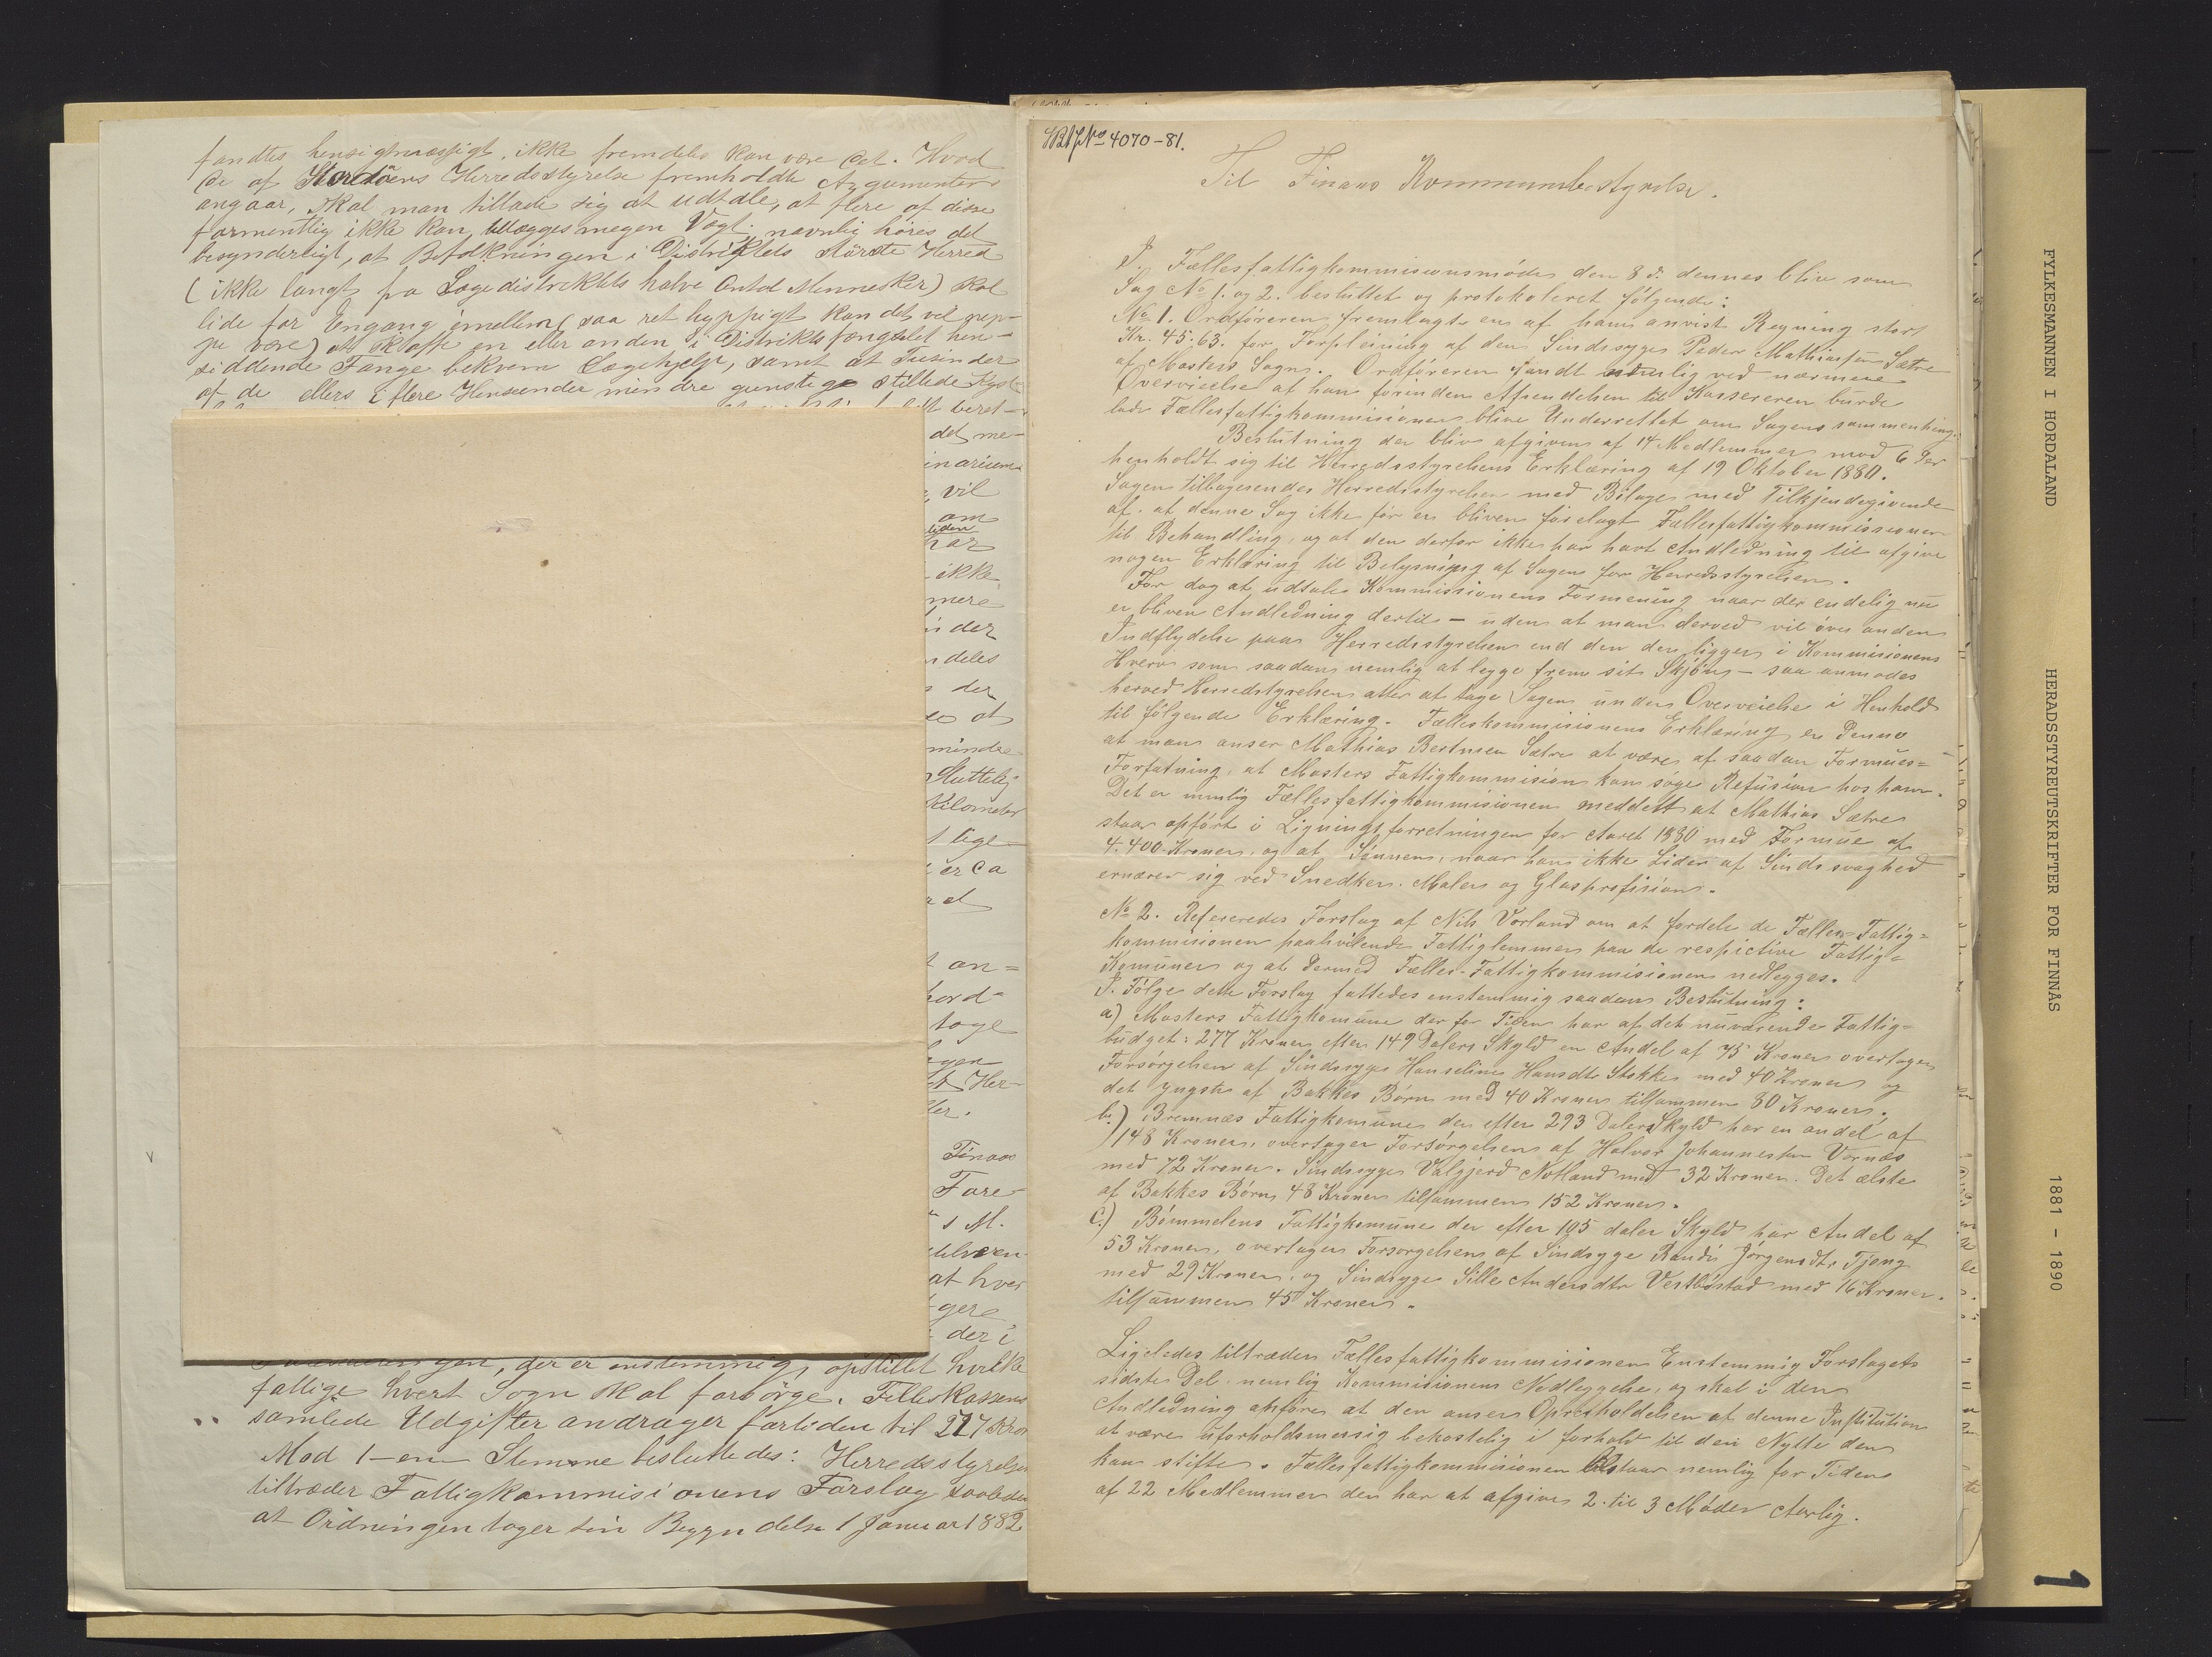 fandtes hensigtmæssigt, ikke fremdeles kan være det. Hvad
de af Stordöens Herredsstyrelse fremholdte Argumenter
angaar, skal man tillade sig at udtale, at flere af disse
formentlig ikke kan tillægges megen Vægt; navnlig höres det
besynderligt, at Befolkningen i Distriktets störste Herred
(ikke langt fra Lægedistriktets halve Antal Mennesker) skal
lide for engang imellem (saa ret hyppigt kan det vel nep-
pe være) at skaffe en eller anden i Distriktsfængslet hen-
siddende Fange bekvem Lægehjelp, samt at Tusinder
af de ellers i flere Henseender mindre gunstige stillede Kyst
det me-
inarium
vil
om
tiden
har
ikke
mere
der
deles
der
at
mindre
Sluttelig
Kilometer
lige-
er ca
an=
hord-
tage
Her-
Finaas
Fore-
s M.
at hver
gere
der i
der er enstemmig, opstillet hvilke
fattige hvert Sogn skal forsörge. Felleskassens
samlede Udgifter andrager fortiden til 277 Kro
Mod 1-en Stemme besluttedes: Herredsstyrelsen
tiltræder Fattigkommisionens Forslag saaledes
at Ordningen tager sin Begyndelse 1 Januar 1882
No 4070-81.
Til Finaas Kommunebestyrelse.
I Fællesfattigkommissionsmöde den 8 d. dennes blive som
Sag No 1. og 2. besluttet og protokoleret fölgende:
No 1. Ordföreren fremlagte en af ham anvist Regning stor
Kr. 45.63. for Forpleining af den Sindssyge Peder Mathiassen Sætre
af Mosters Sogn. Ordföreren fandt nemlig ved nærmere
Overveielse at han forinden Afsendelsen til Kassereren burde
lade Fællesfattigkommisionen blive Underrettet om Sagens sammenheng.
Beslutning der blive afgiven af 14 Medlemmer mod 6 der
henholdt sig til Herredsstyrelsens Erklæring af 19 Oktober 1880.
Sagen tilbagesendes Herredsstyrelsen med Bilage med Tilkjendegivende
af at denne Sag ikke för er bliven forelagt Fællesfattigkommissionen
til Behandling, og at den derfor ikke har havt Andledning til afgive
nogen Erklæring til Belysning af Sagen for Herredsstyrelsen.
For dog at udtale Kommissionens Formening naar der endelig nu
er bliven Andledning dertil – uden at man derved vil öve anden
Indflydelse paa Herredsstyrelsen end den der ligger i Kommisionens
Hverv som saadan nemlig at legge frem sit Skjön – saa anmodes
herved Herredstyrelsen atter at tage Sagen under Overveielse i Henhold
til fölgende Erklæring. Felleskommisionens Erklæring er denne
at man anser Mathias Bertusen Sætre at være af saadan Formues=
Forfatning, at Mosters Fattigkommision kan söge Refusion hos ham.
Det er nemlig Fællesfattigkommisionen meddelt at Mathias Sætre
staar opfört i Ligningsforretningen for Aaret 1880 med Formue af
4.400 Kroner, og at Sönnen, naar han ikke Lider af Sindssvaghed
ernærer sig ved Snedker. Maler og Glasprofision.
No 2. Refereredes Forslag af Nils Vorland om at fordele de Fælles-Fattig=
kommisionen paahvilende Fattiglemmer paa de respictive Fattig=
Komuner og at dermed Fælles-Fattigkommisionen nedlegges.
I Fölge dette Forslag fattedes enstemmig saadan Beslutning:
a) Mosters Fattigkomune der for Tiden har af det nuværende Fattig=
budget: 277 Kroner efter 149 Dalers Skyld en Andel af 75 Kroner overtager
Forsörgelsen af Sindssyge Hanseline Hansdtr Stokke med 40 Kroner og
det yngste af Bakkes Börn med 40 Kroner tilsammen 80 Kroner.
b.) Bremnæs Fattigkomune der efter 293 Dalers Skyld har en andel af
148 Kroner, overtager Forsörgelsen af Halvor Johannessen Vornæs
med 72 Kroner. Sindssyge Valgjerd Notland med 32 Kroner. Det ælste
af Bakkes Börn 48 Kroner tilsammen 152 Kroner.
C.) Bömmelens Fattigkomune der efter 105 daler Skyld har Andel af
53 Kroner, overtager Forsorgelsen af Sindsyge Randi Jörgensdtr Tjong
med 29 Kroner, og Sindsyge Sille Andersdtr Vestböstad med 16 Kroner.
tilsammen 45 Kroner.
Ligeledes tiltræder Fællesfattigkommisionen Enstemmig Forslagets
sidste Del nemlig Kommisionens Nedleggelse, og skal i den
Andledning anföres at den anser Opretholdelsen af denne Institution
at være uforholdsmæssig bekostelig i forhold til den Nytte den
kan stifte. Fællesfattigkommisionen bestaar nemlig for Tiden
af 22 Medlemmer der har at afgive 2 til 3 Möder Aarlig.
FYLKESMANNEN I HORDALAND
HERADSSTYREUTSKRIFTER FOR FINNÅS
1881 - 1890
1